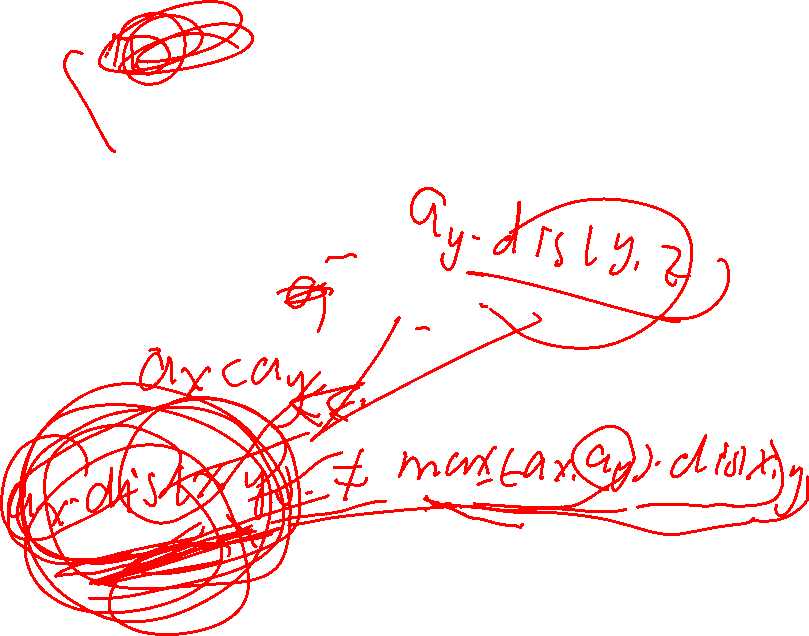 a_y·dis(y,z)
a_x<a_y
a_x·dis(x,y) ≠ max(a_x,a_y)·dis(x,y)